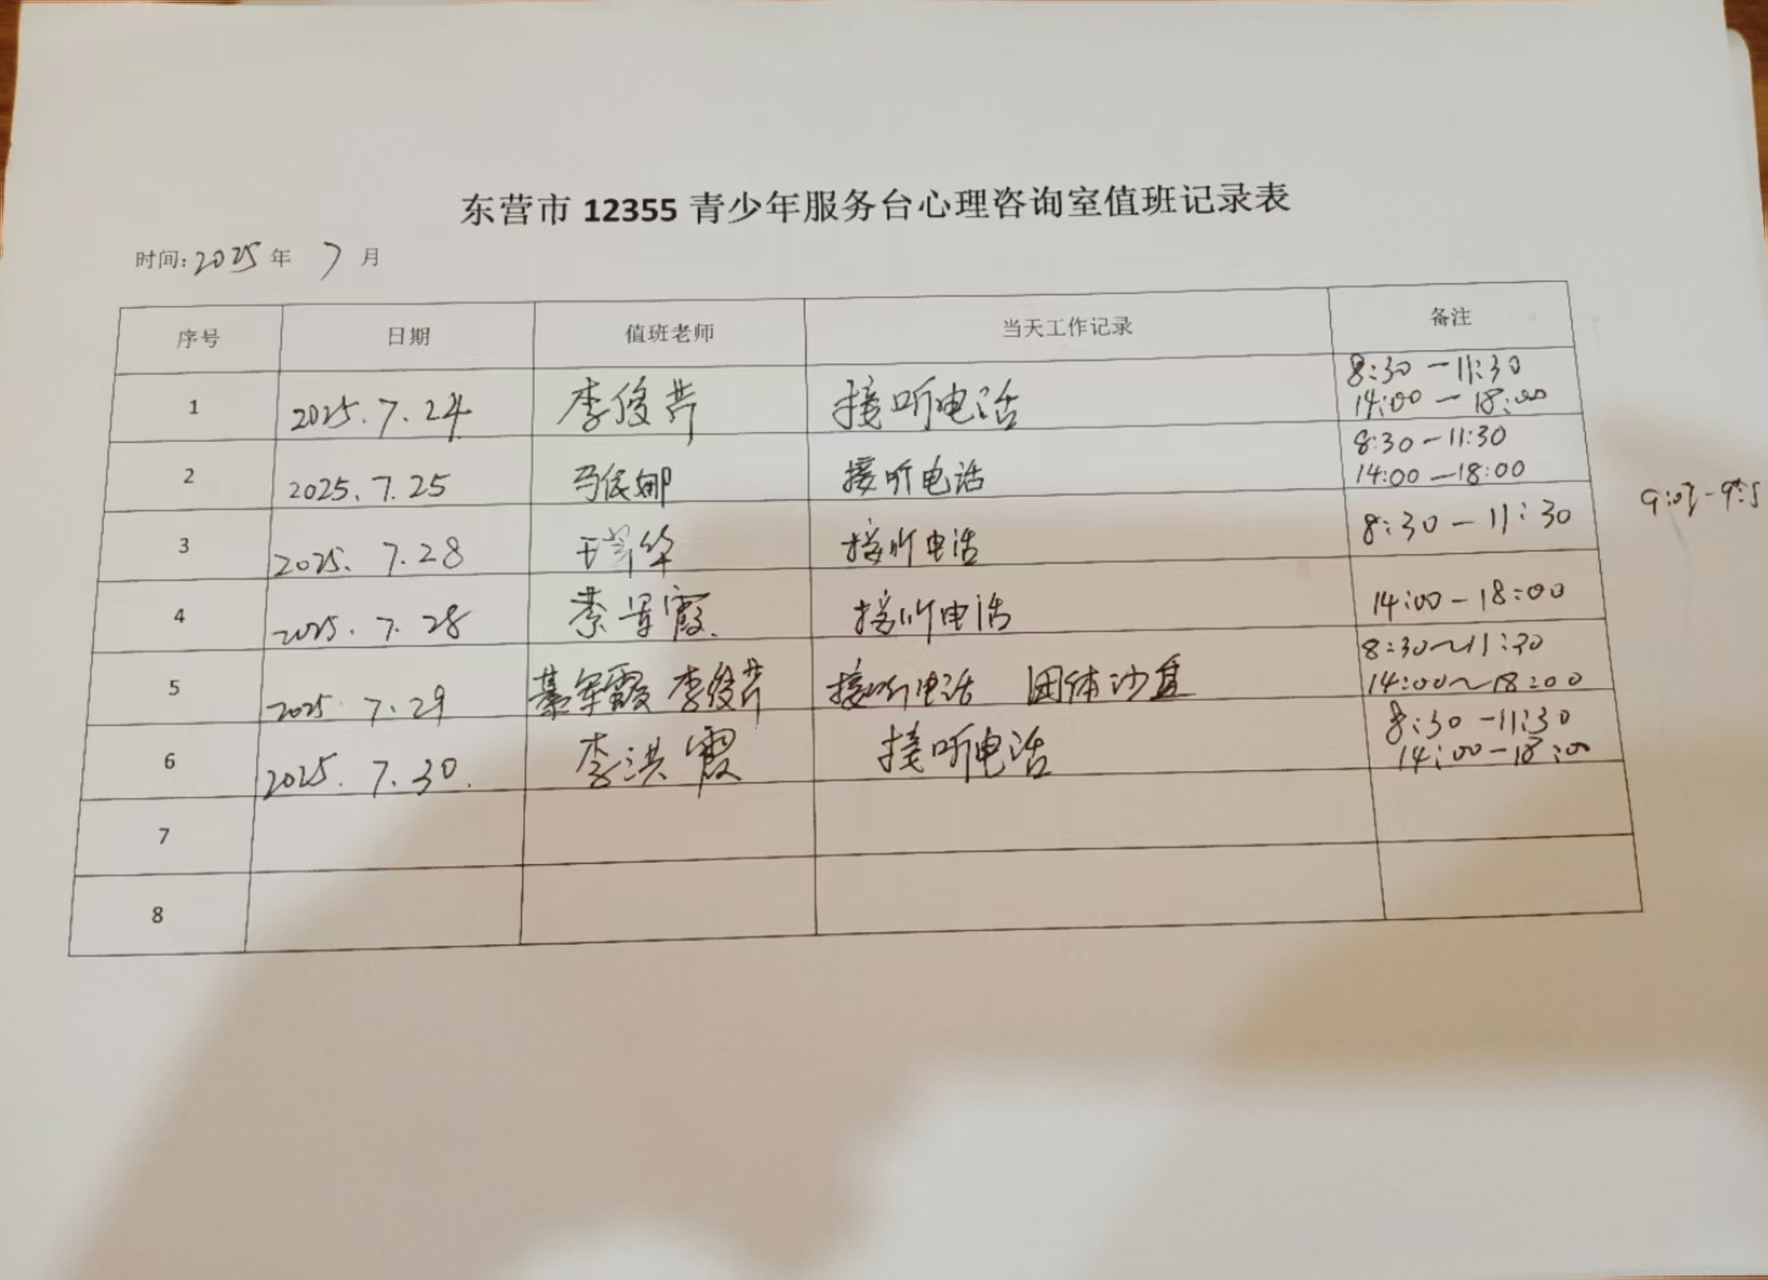 东营市 12355 青少年服务台心理咨询室值班记录表
时间: 2025 年 7 月
序号 日期 值班老师 当天工作记录 备注
1 2025.7.24 李俊芹 接听电话 8:30-11:30
14:00-18:00
2 2025.7.25 马依娜 接听电话 8:30-11:30
14:00-18:00
3 2025.7.28 华 接听电话 8:30-11:30
9:07-9:
4 2025.7.28 綦军霞 接听电话 14:00-18:00
5 2025.7.29 綦军霞 李俊芹 接听电话 团体沙盘 8:30~11:30
14:00~18:00
6 2025.7.30. 李洪霞 接听电话 8:30-11:30
14:00-18:00
7
8